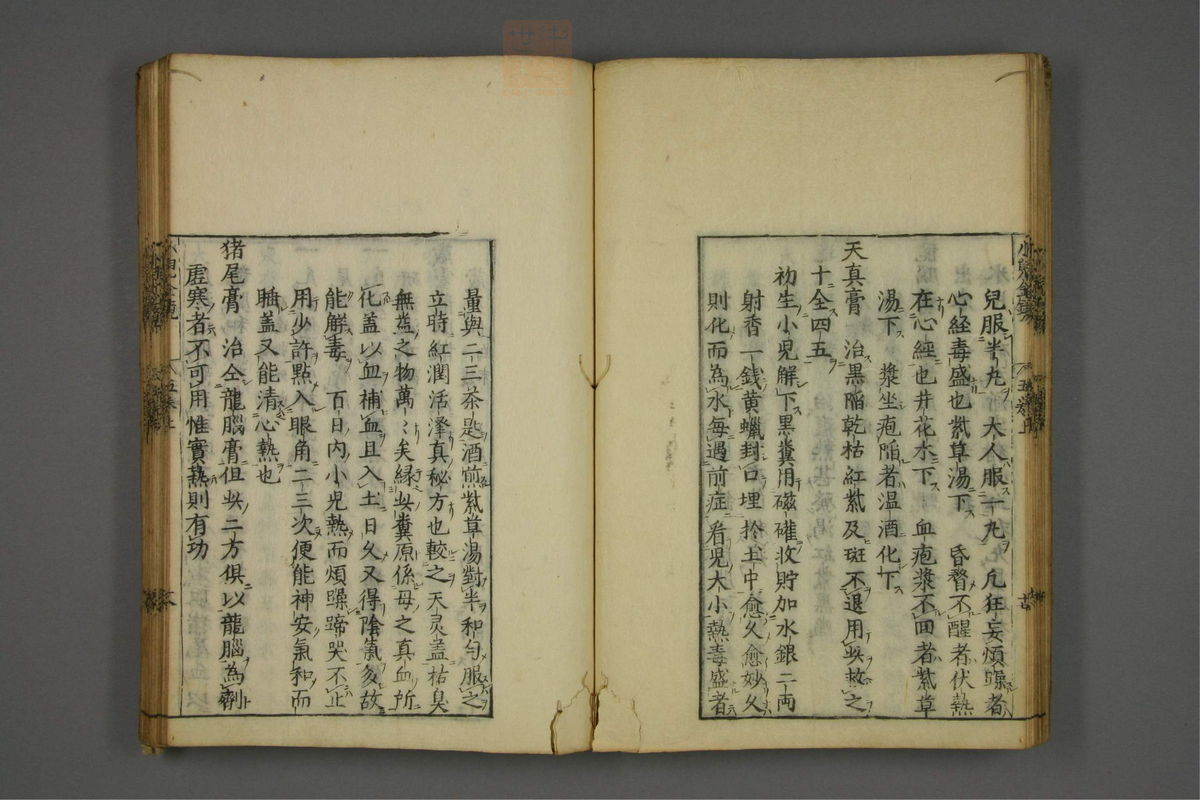 兒服半丸大人服一丸凡狂妄煩躁者
心経毒盛也紫草湯下　昏瞀不醒者伏熱
在心經也井花水下　血疱漿不囬者紫草
湯下　漿坐疱陥者温酒化下
天真膏　治黒陥乾枯紅紫及斑不退用此救之
十全四五
初生小児解下黒糞用磁礶收貯加水銀二両
射香一銭黄蠟封口埋於土中愈久愈妙久
則化而為水毎過前症看児大小熱毒盛者
量與二三茶匙酒煎紫草湯對半和匀服之
立時紅潤活澤真秘方也較之天灵盖枯臭
無益之物萬〻矣縁此糞原係母之真血所
化蓋以血補血且入土日久又得陰氣多故
能解毒　百日内小児熱而煩躁蹄哭不止
用少許點入眼角二三次便能神安氣和而
睡蓋又能清心熱也
猪尾膏　治仝龍腦膏但此二方俱以龍腦為劑
虚寒者不可用惟實熱則有功